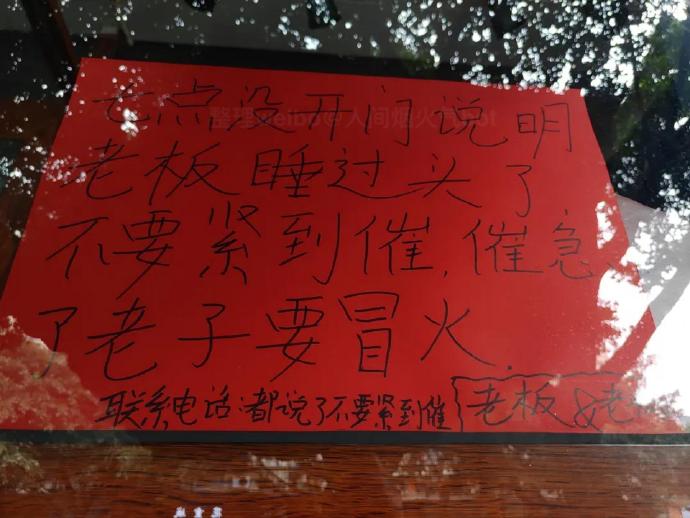 七点没开门说明
老板睡过头了
不要紧到催，催急
了老子要冒火.
联系电话:都说了不要紧到催
老板&老